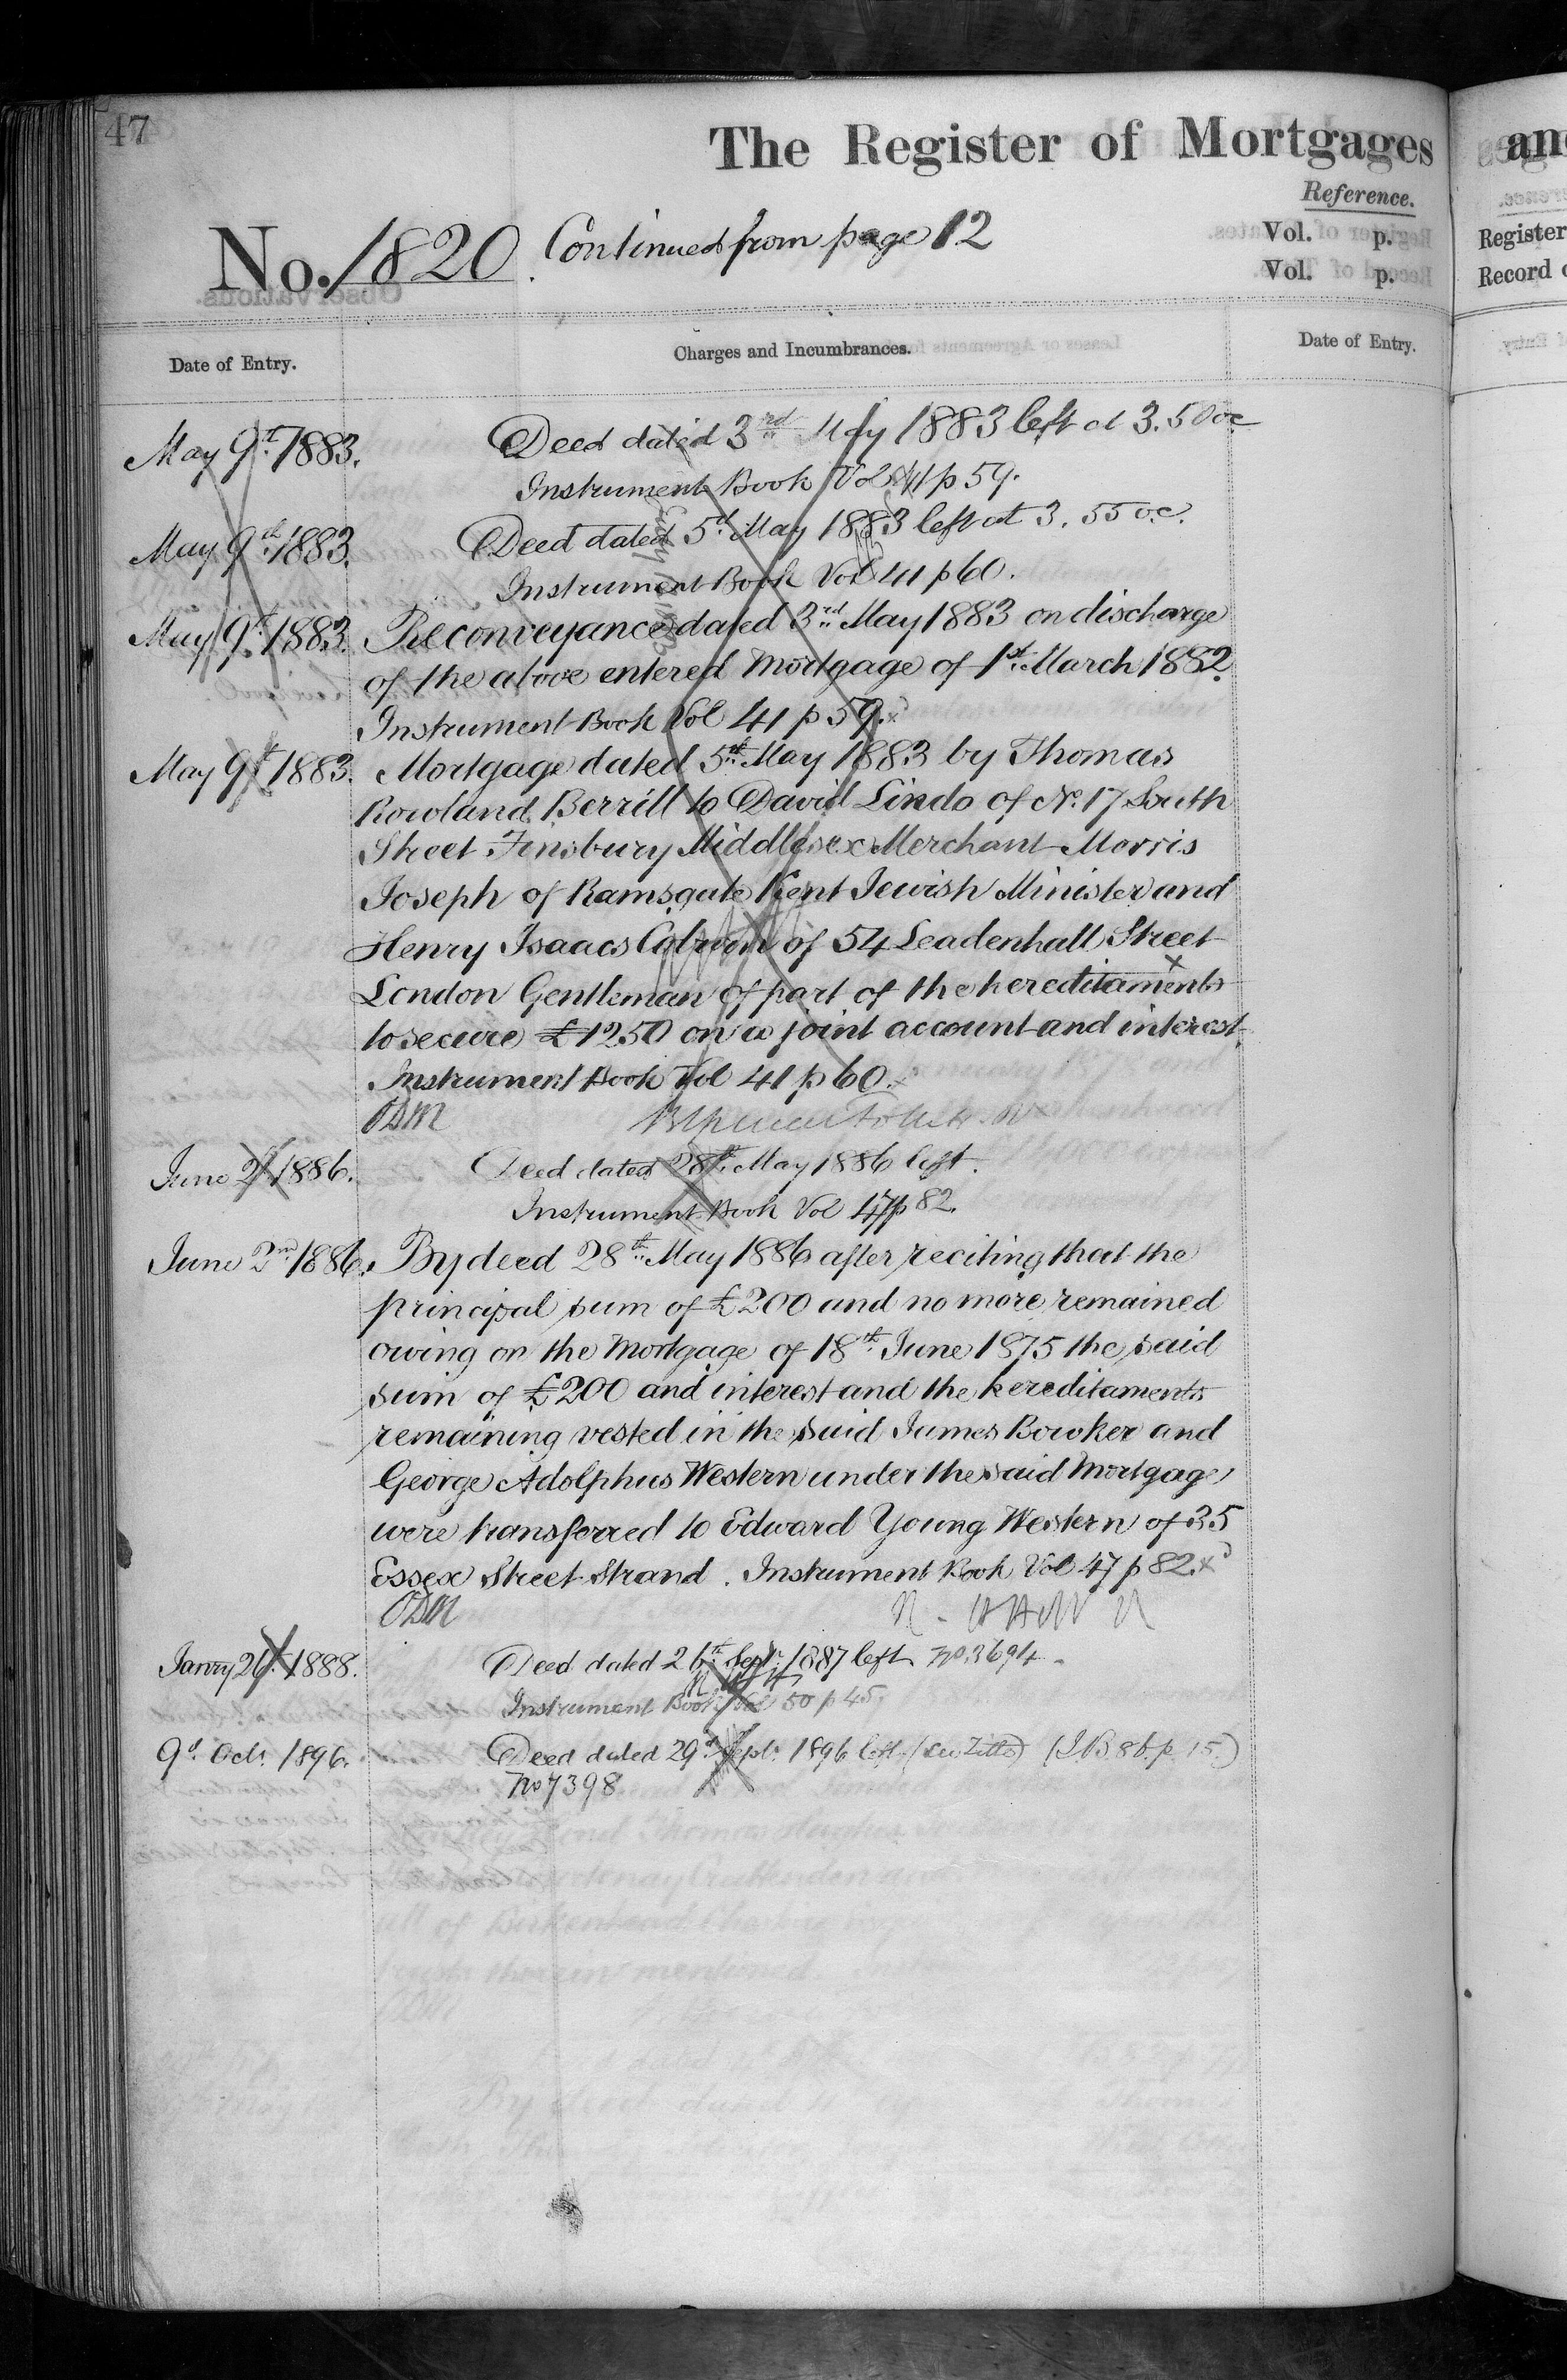 47
The Register of Mortgages
Reference.
Vol. p.
Vol. p.
No. 1820. Continued from page 12
Date of Entry.
Charges and Incumbrances.
Date of Entry.
May 9th 1883. Deed dated 3rd May 1883 left at 3.50 oc
Instrument Book Vol 41 p 59.
May 9th 1883. Deed dated 5th May 1883 left at 3.55 o.c.
Instrument Book Vol 41 p 60.
May 9th 1883. Reconveyance dated 3rd May 1883 on discharge
of the above entered Mortgage of 1st March 1882.
Instrument Book Vol 41 p 59. x
May 9th 1883. Mortgage dated 5th May 1883 by Thomas
Rowland Berrill to David Lindo of No. 17 South
Street Finsbury Middlesex Merchant Morris
Joseph of Ramsgate Kent Jewish Minister and
Henry Isaacs of 54 Leadenhall Street
London Gentleman of part of the hereditaments
to secure £1250 on a joint account and interest.
Instrument Book Vol 41 p 60. x
ODM
June 2d 1886. Deed dated 28th May 1886 left.
Instrument Book Vol 47 p 82.
June 2nd 1886. By deed 28th May 1886 after reciting that the
principal sum of £200 and no more remained
owing on the Mortgage of 18th June 1875 the said
sum of £200 and interest and the hereditaments
remaining vested in the said James Bowker and
George Adolphus Western under the said Mortgage
were transferred to Edward Young Western of 35
Essex Street Strand. Instrument Book Vol 47 p 82. x
ODM
Janry 26 1888. Deed dated 26th Sept. 1887 left No 3694
Instrument Book Vol 50 p 45.
9d Octr 1896. Deed dated 29d Sept. 1896 left (See Title) (I.B 86. p 15.)
No 7398
an
Register
Record